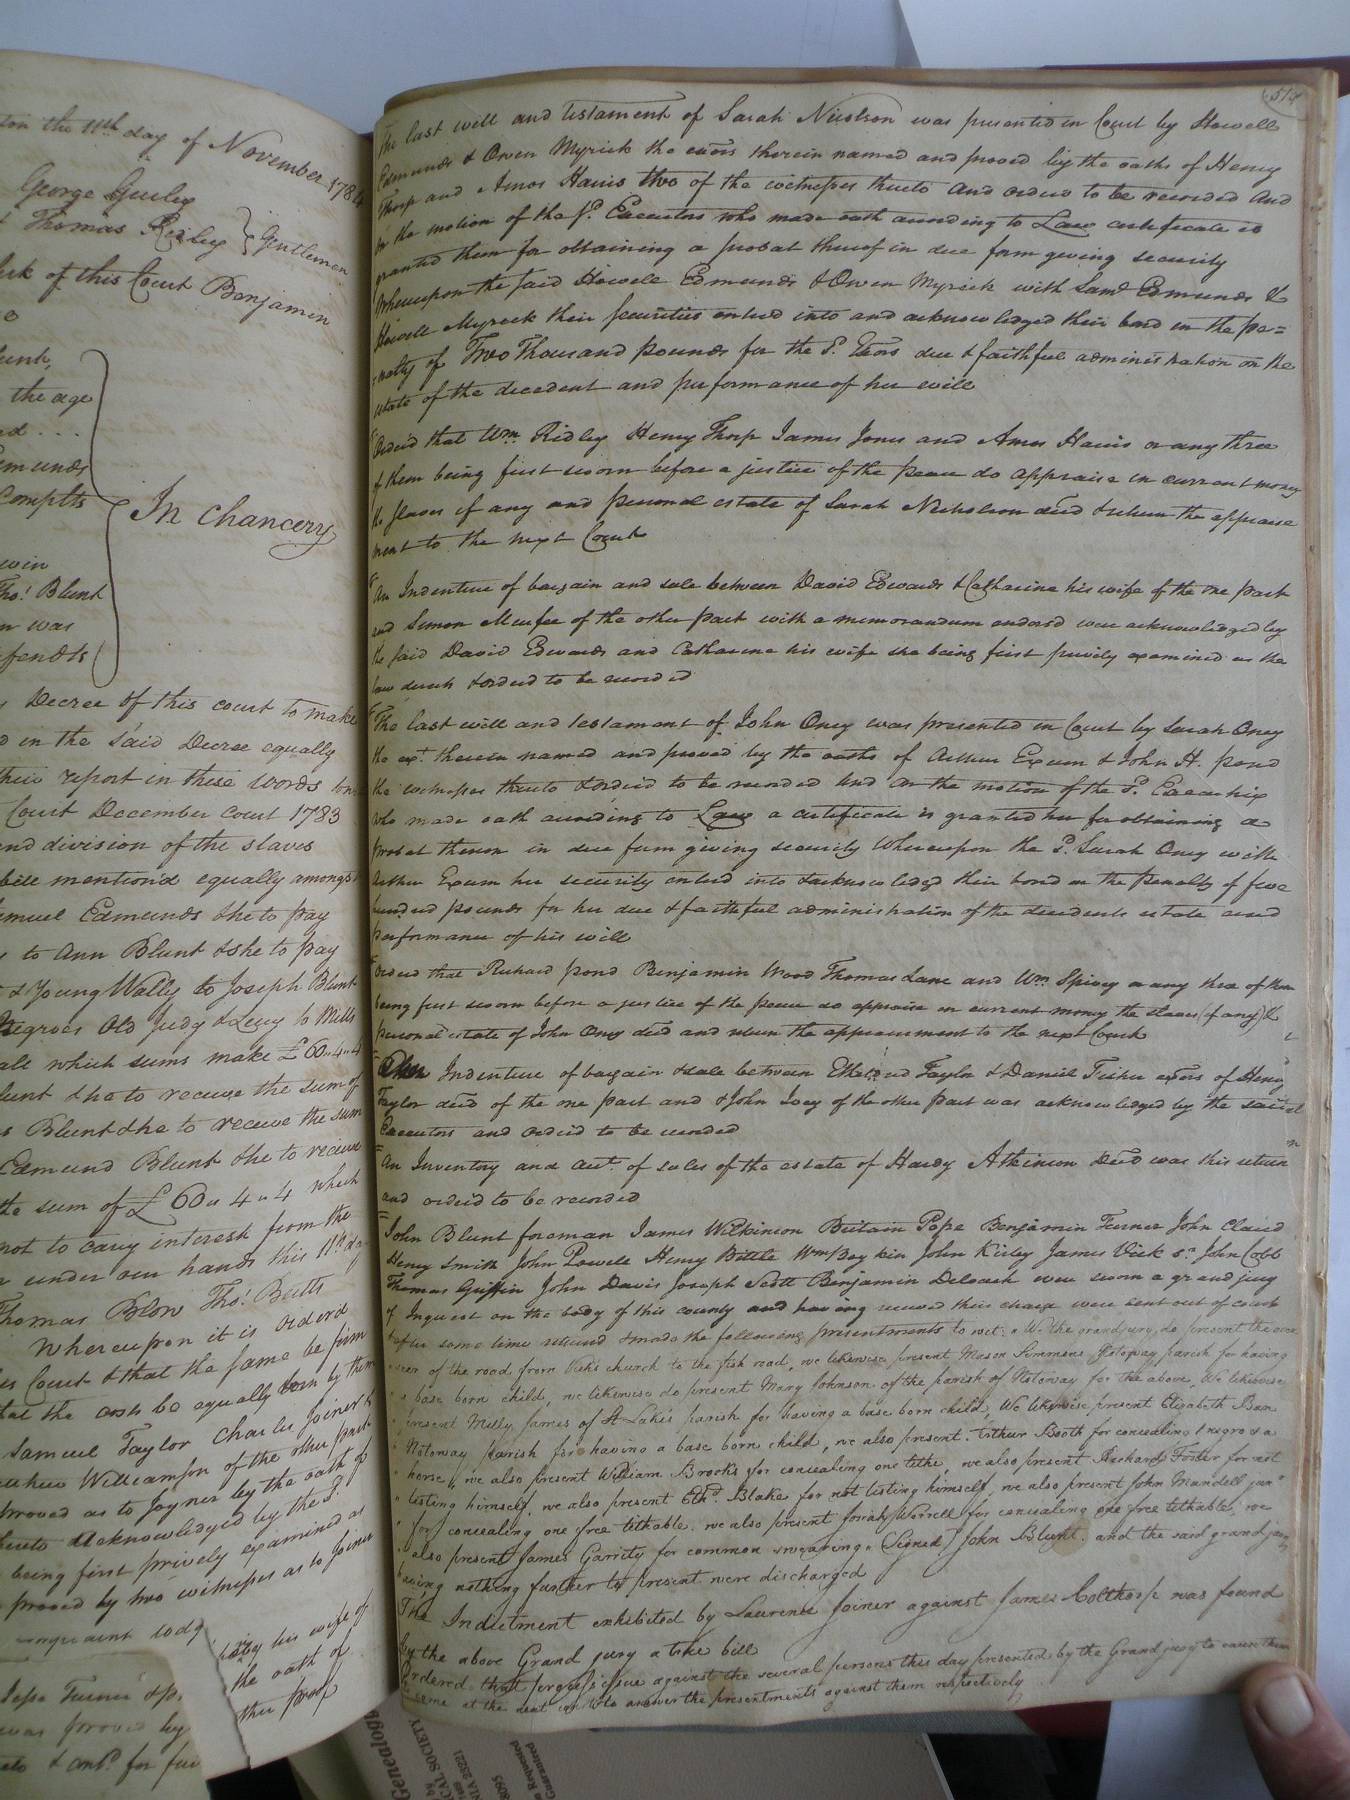 on the 11th day of November 1784
George Gurley
Thomas Ridley } Gentlemen
Clerk of this Court Benjamin
Blunt,
the age
Edmunds
Complts
In Chancery
Tho.s Blunt
was
Defendts
Decree of this court to make
in the said Decree equally
their report in these words to
Court December court 1783
and division of the slaves
bill mention'd equally amongst
Samuel Edmunds she to pay
to Ann Blunt & she to pay
& Young Wally to Joseph Blunt
Negroes Old Judy & Lucy to Mills
all which sums make £60.,4.,4
Blunt & he to receive the sum of
Blunt & he to receive the sum
Edmund Blunt & he to receive
the sum of £60 ,, 4 ,, 4 which
not to carry interest from the
under our hands this 11th da
Thomas Blow Tho.s Butts
Whereupon it is orderd
Court & that the same be firm
that the costs be equally born by them
Samuel Taylor Charles Joiner &
Williamson of the other part
proved as to Joyner by the oath of
acknowledged by the s.d
being first prively examined as
proved by two witnesses as to Joiner
his wife of
the oath of
ther proof
Jesse Turner
was proved by
& cont.d for fur
514
The last will and testament of Sarah Nicolson was presented in Court by Howell
Edmunds & Owen Myrick the exors therein named and proved by the oaths of Henry
Thorp and Amos Harris two of the witnesses thereto and orderd to be recorded And
on the motion of the s.d Executors who made oath according to Law certificate is
granted them for obtaining a probat thereof in due form giving security
Whereupon the said Howell Edmunds & Owen Myrick with Sam.l Edmunds &
Howell Myrick their securities entered into and acknowledged their bond in the pe=
=nalty of Two Thousand pounds for the s.d Exors due & faithful administration on the
estate of the decedent and performance of her will
Orderd that Wm Ridley Henry Thorp James Jones and Amos Harris or any three
of them being first sworn before a justice of the peace do appraise in current money
the slaves if any and personal estate of Sarah Nicholson decd & return the appraise
ment to the next Court
An Indenture of bargain and sale between David Edwards & Catharine his wife of the one part
and Simon Murfee of the other part with a memorandum endorsd were acknowledged by
the said David Edwards and Catharine his wife she being first privily examined as the
law directs & orderd to be recorded
The last will and testament of John Oney was presented in Court by Sarah Oney
the ex.x therein named and proved by the oaths of Arthur Exum & John H. Pond
the witnesses thereto & orderd to be recorded And on the motion of the s.d Executrix
who made oath according to Law a certificate is granted her for obtaining a
probat thereon in due form giving security Whereupon the s.d Sarah Oney with
Arthur Exum her security entered into & acknowledged their bond in the penalty of five
hundred pounds for her due & faithful administration of the decedents estate and
performance of his will
Orderd that Richard Pond Benjamin Wood Thomas Lane and Wm. Spivey or any three of them
being first sworn before a justice of the peace do appraise in current money the slaves (if any) &
personal estate of John Oney decd and return the appraisement to the next Court
An Indenture of bargain & sale between Etheldred Taylor & Daniel Fisher exors of Henry
Taylor decd of the one part and & John Ivey of the other part was acknowledged by the said
Executors and orderd to be recorded
An Inventory and acct. of sales of the estate of Hardy Atkinson Decd was this return
and orderd to be recorded
John Blunt foreman James Wilkinson Britain Pope Benjamin Turner John Claud
Henry Smith John Powell Henry Bittle Wm Boykin John Kirby James Vick sr John Cobb
Thomas Griffin John Davis Joseph Scott Benjamin Deloach were sworn a grand jury
of Inquest on the body of this county and having received their charge were sent out of court
& after some time returnd & made the following presentments to wit: "We the grand jury, do present the over
" seer of the road from Vicks church to the fish road, we likewise present Mason Simmons Notoway parish for having
" a base born child, we likewise do present Mary Johnson of the parish of Notoway for the above, We likewise
" present Milly James of St Lukes parish for having a base born child, We likewise present Elizabeth Bran
" Notoway parish for having a base born child, we also present Arthur Booth for concealing 1 negro & a
" horse, we also present William Brooks for concealing one tithe we also present Richard Foster for not
" listing himself, we also present Eth.d Blake for not listing himself, we also present John Mandell jun.r
" for concealing one free tithable, we also present Josiah Worrell for concealing one free tithable, we
" also present James Garrity for common swearing." (Signed) John Blunt. and the said grand jury
having nothing further to present were discharged
The Indictment exhibited by Laurence Joiner against James Colthorp was found
by the above Grand jury a true bill
Ordered that process issue against the several persons this day presented by the Grand jury to cause them
to come at the next court to answer the presentments against them respectively
Genealog
CAL SOCIETY
NIA 23221
8095
n Requested
Guaranteed